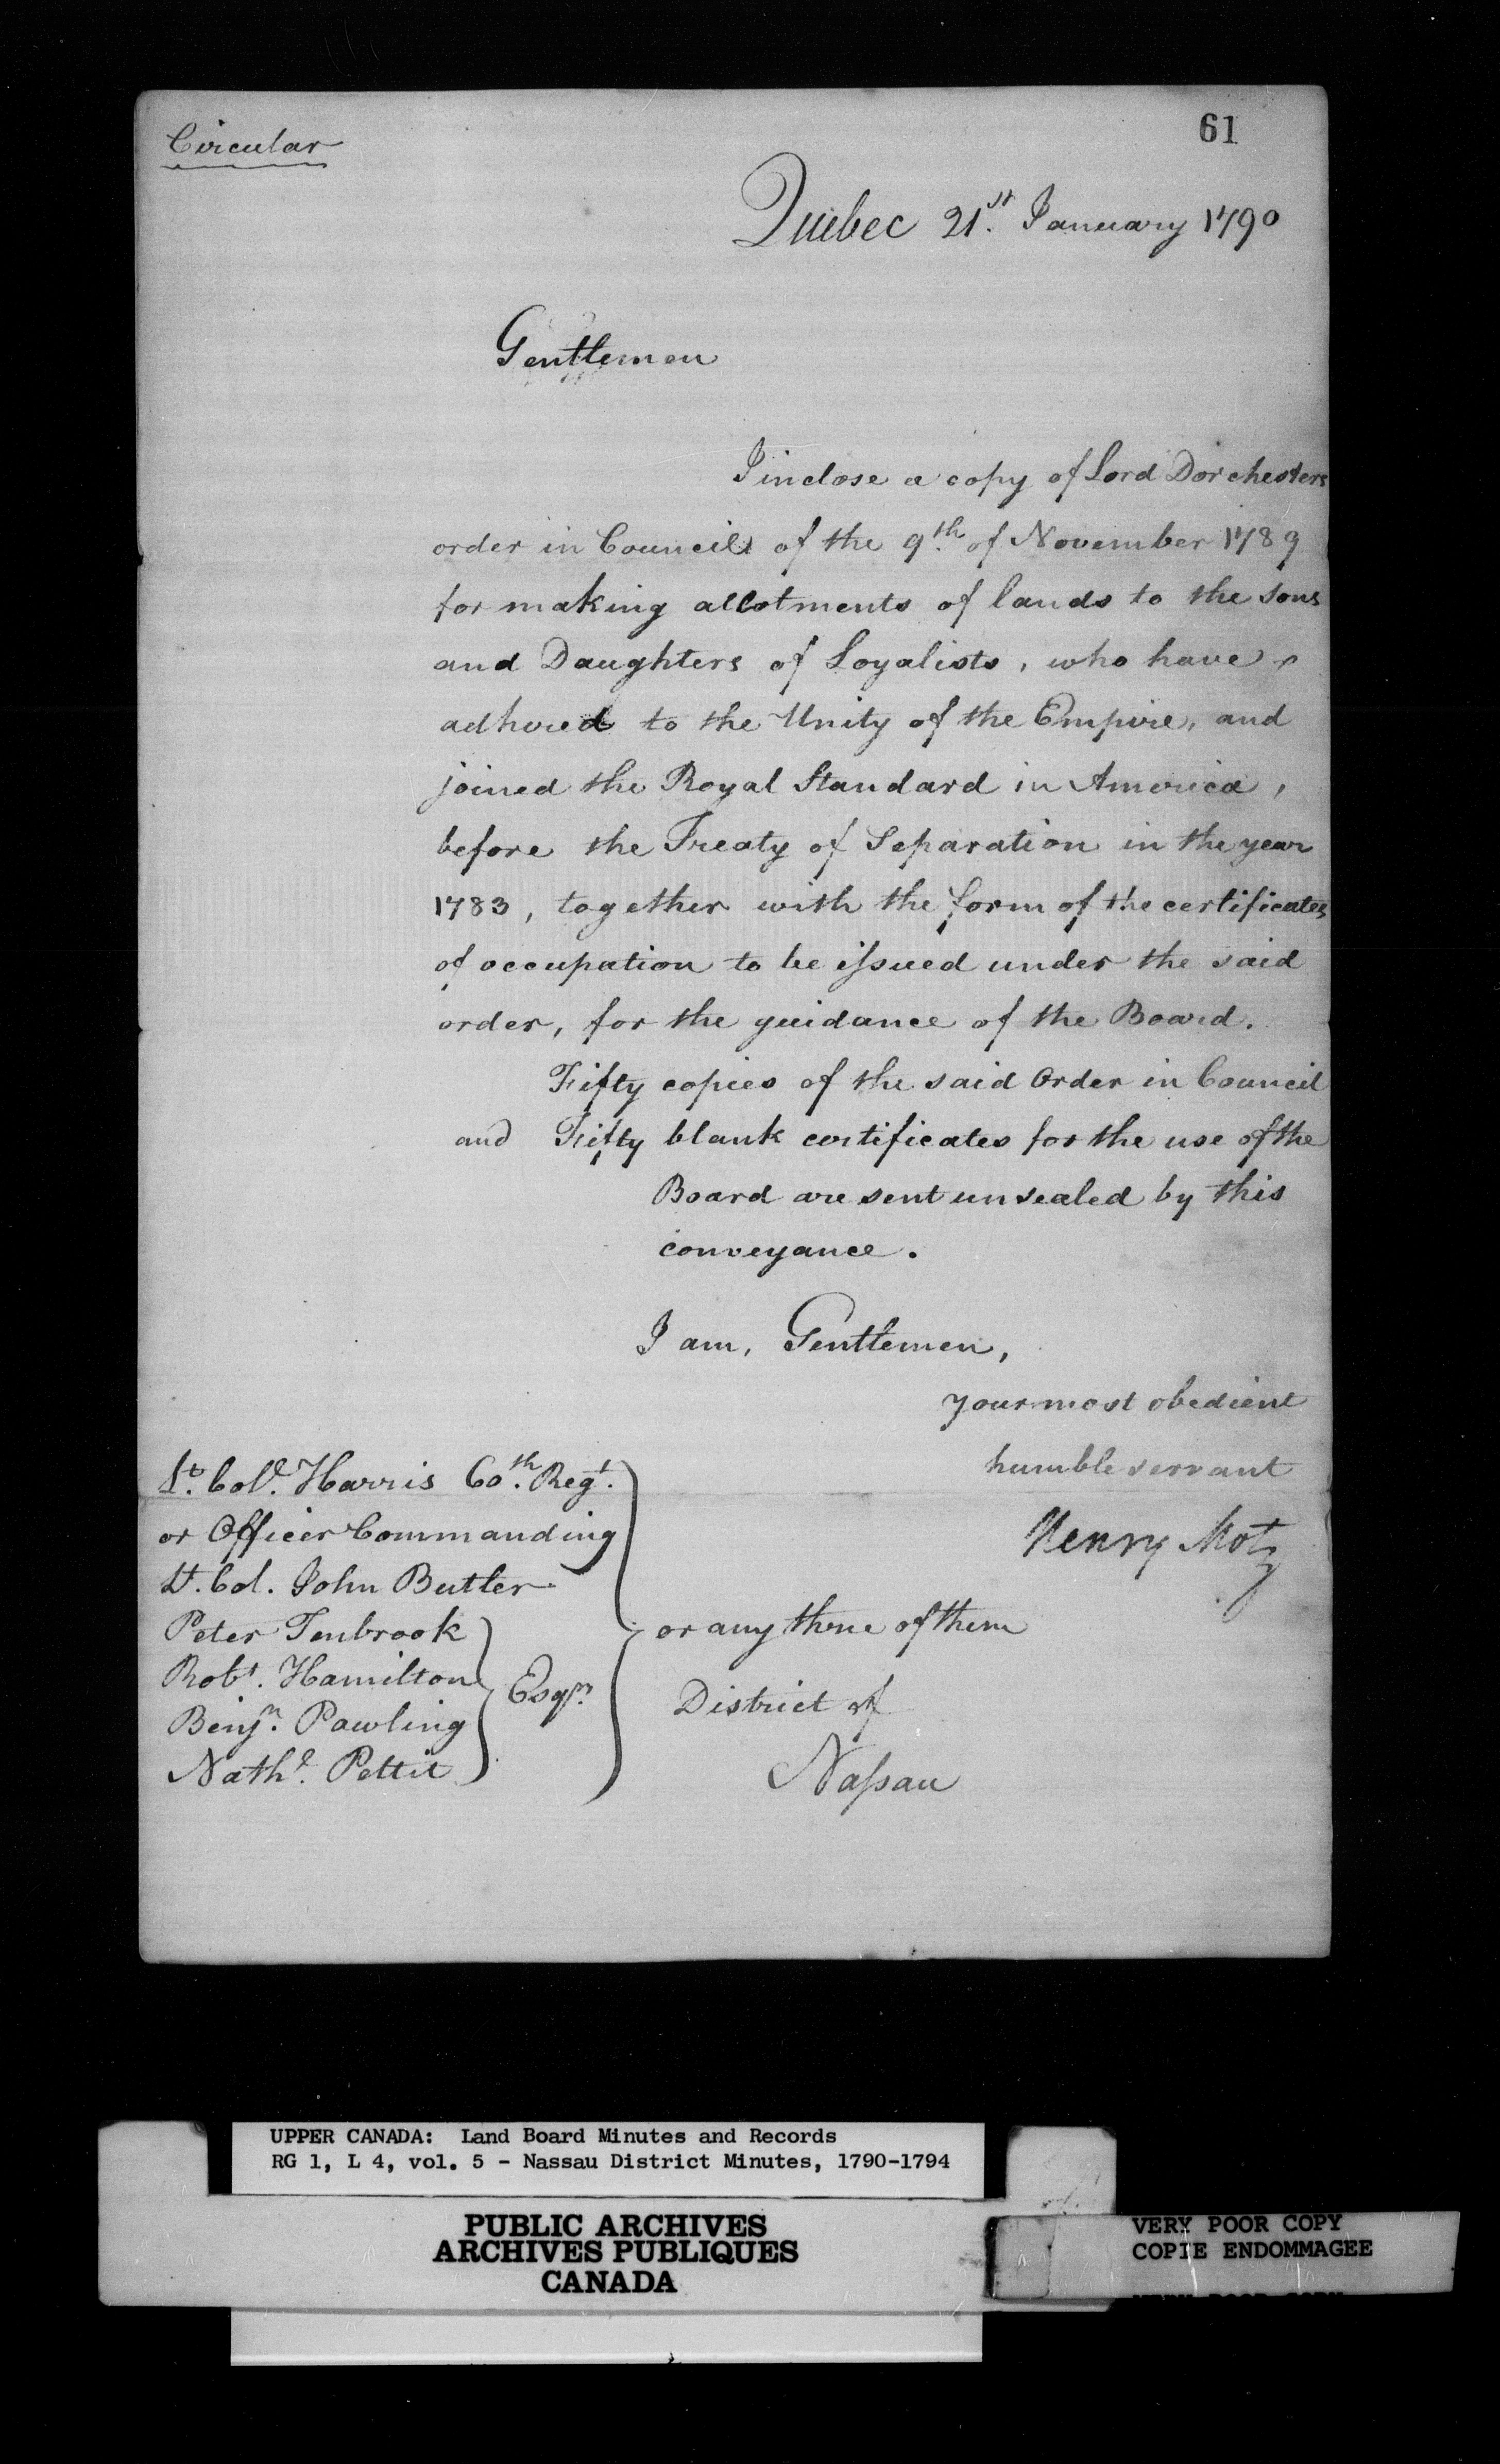 Circular
61
Quebec 21st. January 1790
Gentlemen
I inclose a copy of Lord Dorchesters
order in Council of the 9th. of November 1789
for making allotments of lands to the sons
and Daughters of Loyalists, who have
adhered to the Unity of the Empire, and
joined the Royal Standard in America,
before the Treaty of Separation in the year
1783, together with the form of the certificates
of occupation to be issued under the said
order, for the guidance of the Board.
Fifty copies of the said Order in Council
and Fifty blank certificates for the use of the
Board are sent unsealed by this
conveyance.
I am, Gentlemen,
your most obedient
humble servant
Henry Motz
Lt. Coll. Harris 60th. Regt.
or Officer Commanding
Lt. Col. John Butler
Peter Tenbrook
Robt. Hamilton
Benjn. Pawling
Nathl. Pettit
Esqrs.
or any three of them
District of
Nassau
UPPER CANADA: Land Board Minutes and Records
RG 1, L 4, vol. 5 - Nassau District Minutes, 1790-1794
PUBLIC ARCHIVES
ARCHIVES PUBLIQUES
CANADA
VERY POOR COPY
COPIE ENDOMMAGEE
VERY POOR COPY